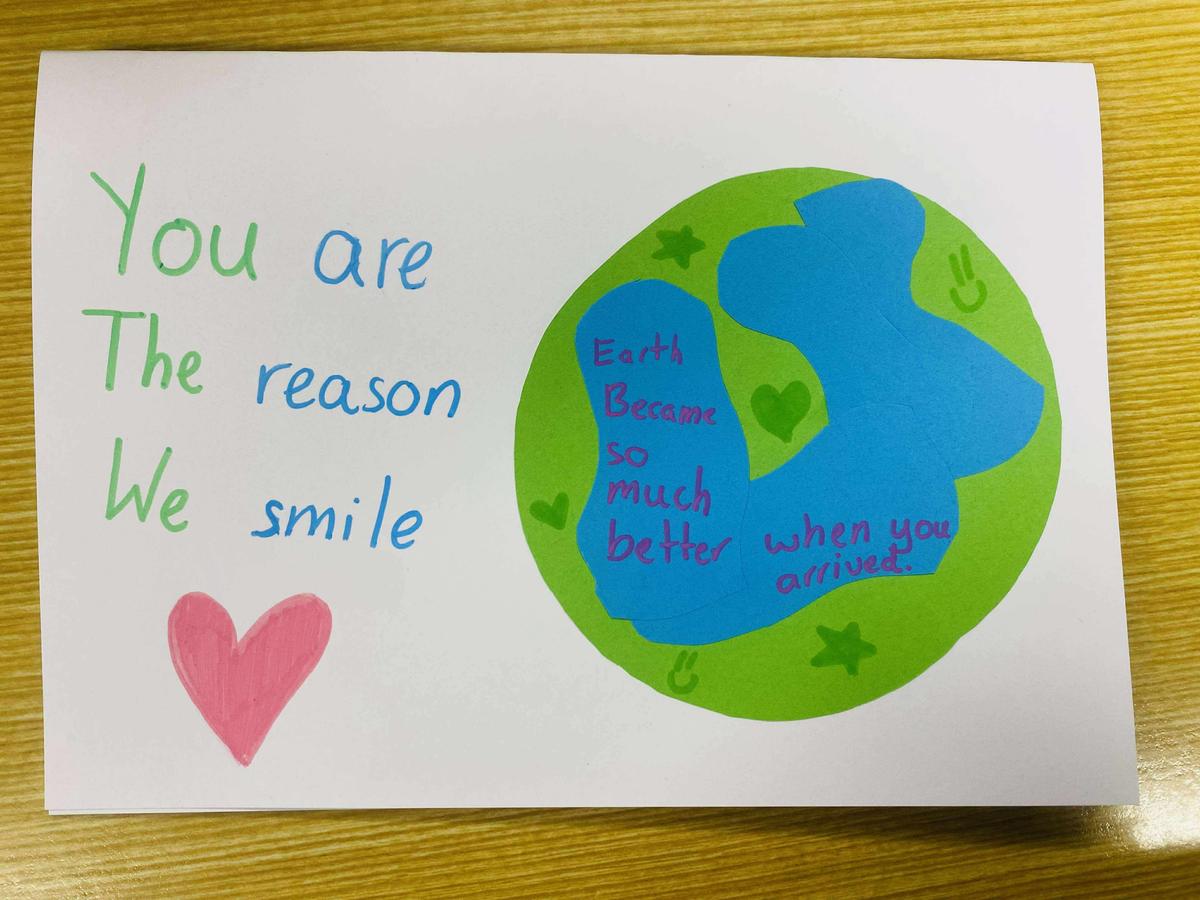 You are
The reason
We smile
Earth
Became
so
much
better
when you
arrived.